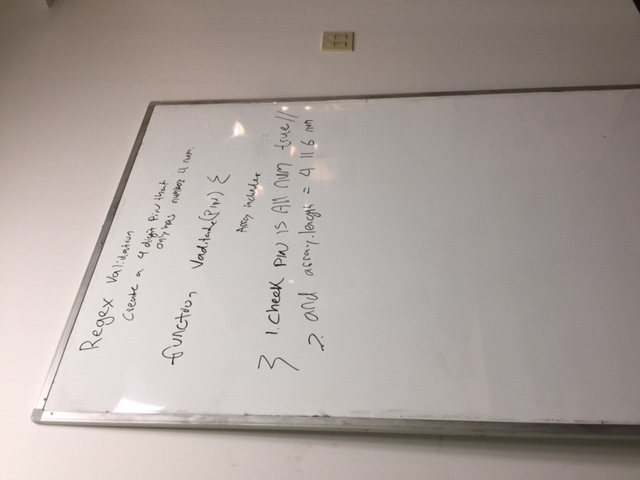 Regex Validation
Create a 4 digit Pin that
only has numbers 4 num.
function Vaditate(PIN) {
Array includes
} 1. check PIN is All num true//
2. and array.length = 4 || 6 num